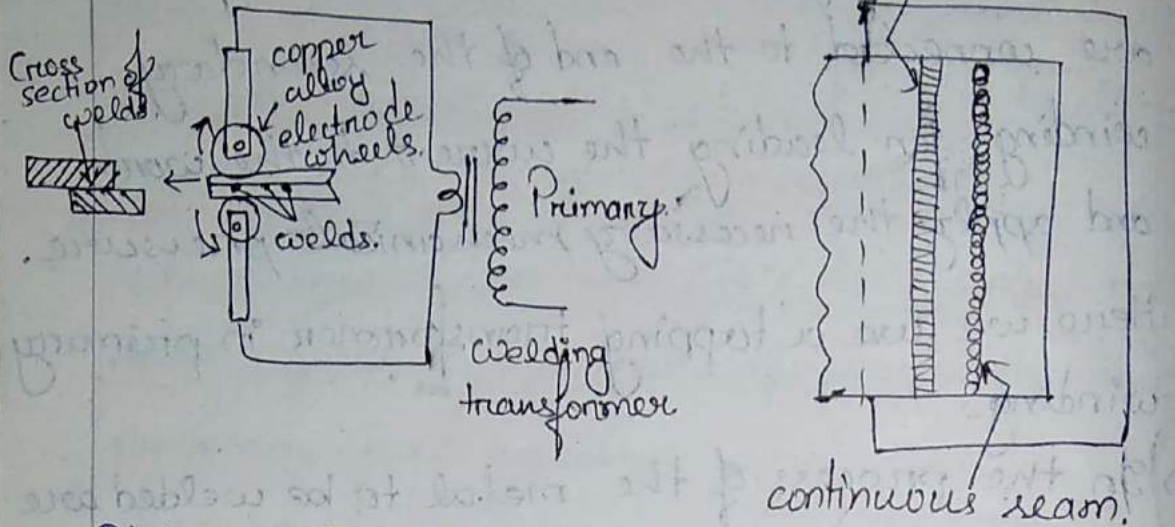 Cross
section of
welds.
copper
alloy
electrode
wheels.
welds.
Primary.
welding
transformer
continuous seam.